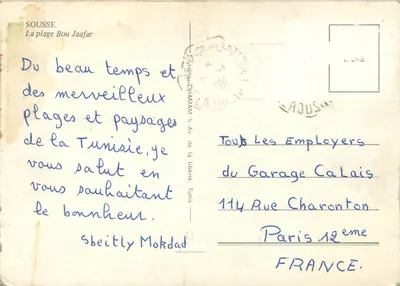 SOUSSE
La plage Bou Jaafar
Du beau temps et
des merveilleux
plages et paysages
de la Tunisie, je
vous salut en
vous souhaitant
le bonnheur.
Sbeitly Mokdad
CHAMAM 5, Av. de la liberté, Tunis
Tous Les Employers
du Garage Calais
114 Rue Charonton
Paris 12eme
FRANCE.